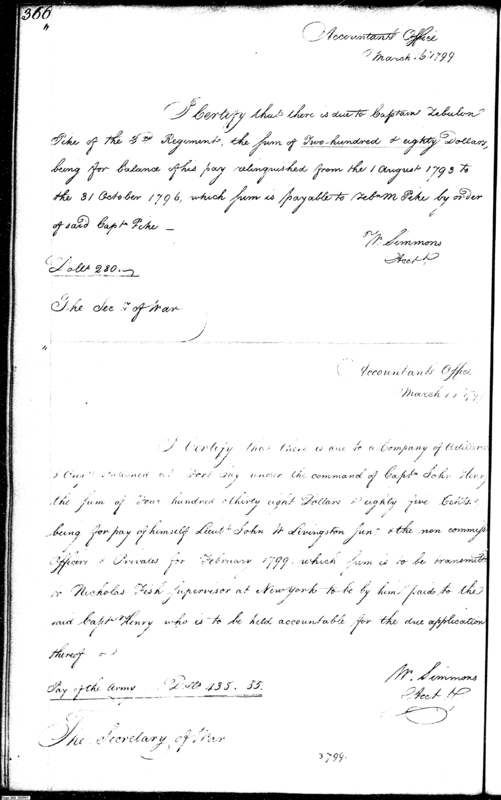 366
Accountants Office
March 16th 1799
I Certify that there is due to Captain Zebulon
Pike of the 3rd Regiment, the sum of Two hundred & eighty Dollars,
being for balance of his pay relinquished from the 1 August 1793 to
the 31 October 1796, which sum is payable to Zebn M Pike by order
of said Capt Pike —
W. Simmons
Acct
Dolls 280.
The Secy of War
Accountants Office
March
I Certify that there is due to a Company of
stationed at Fort Jay under the command of Capt John Henry
the sum of Four hundred & thirty eight Dollars & eighty five Cents
being for pay of himself Lieut John W Livingston Junr & the non commiss
Officers & Privates for February 1799. which sum is to be transmitt
to Nicholas Fish Supervisor at New York to be by him paid to the
said Capt Henry who is to be held accountable for the due application
thereof
W. Simmons
Acct
Pay of the Army Dolls 438. 85.
The Secretary of War
1799.